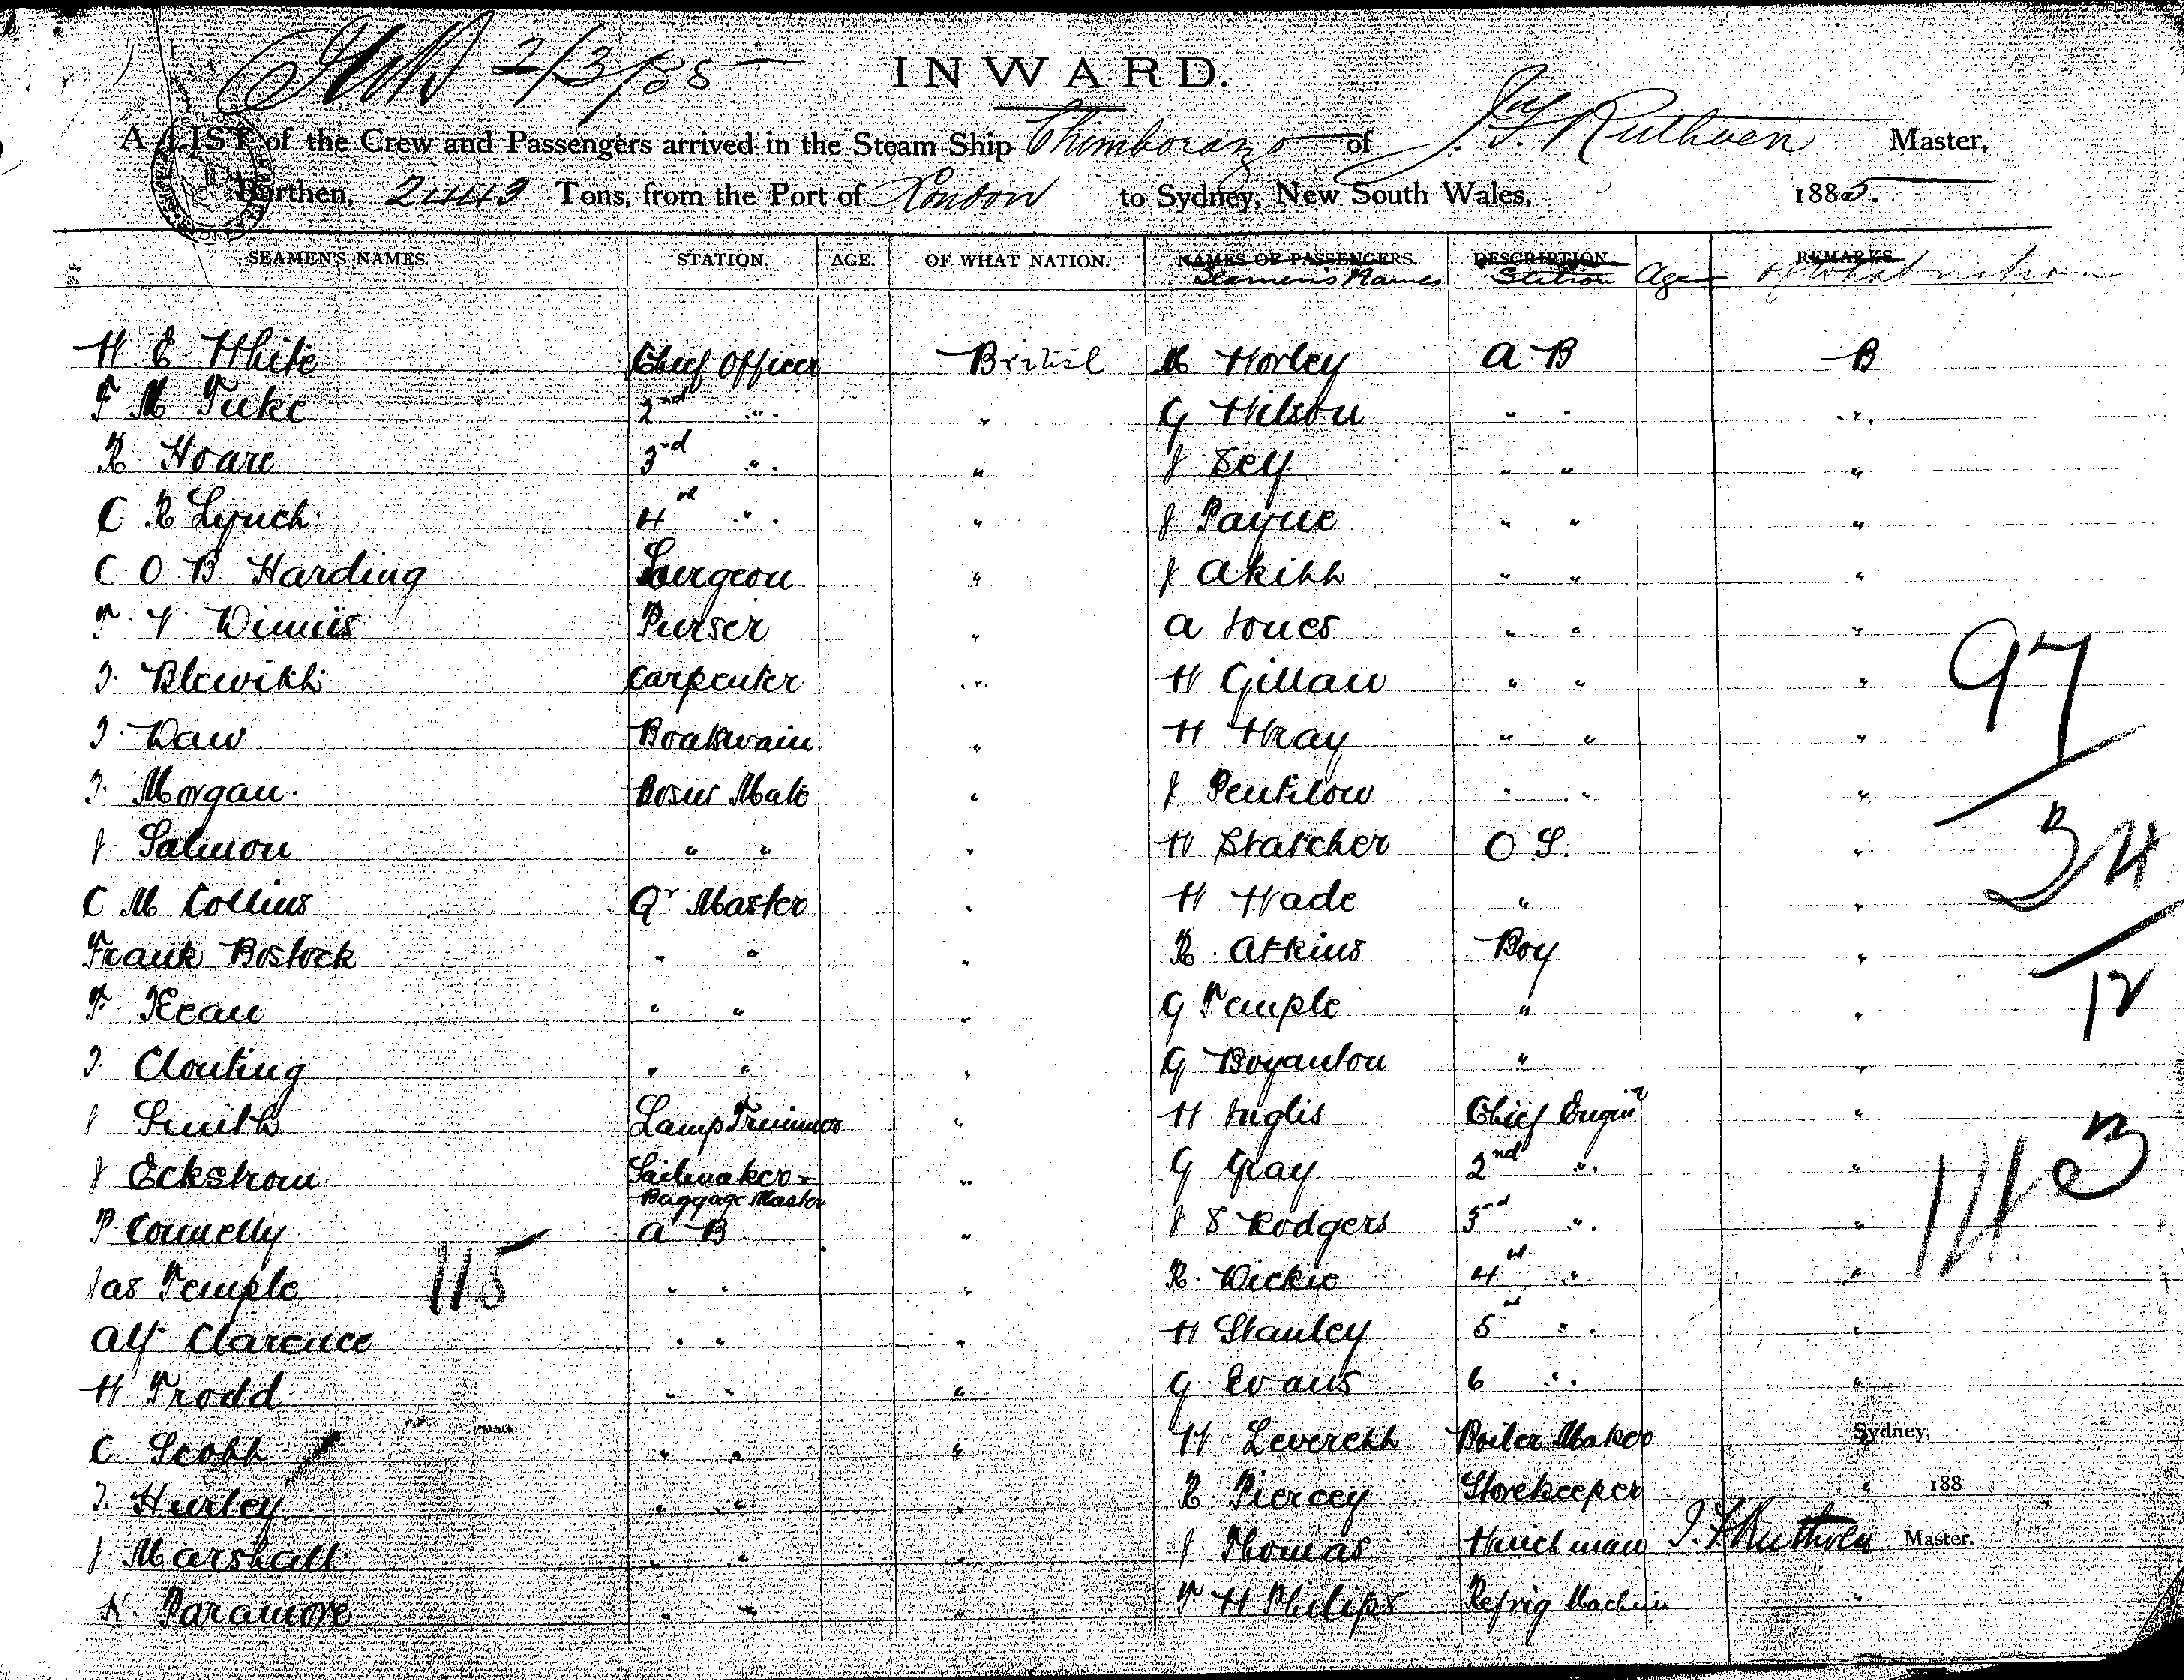 2/3/85
INWARD.
A LIST of the Crew and Passengers arrived in the Steam Ship Chimborazo of J. F. Ruthven Master,
Burthen, 2443 Tons, from the Port of London to Sydney, New South Wales, 1885.
SEAMEN'S NAMES. STATION. AGE. OF WHAT NATION. NAMES OF PASSENGERS. DESCRIPTION. REMARKS.
Seamen's Names Station Age of what nation
H E White Chief Officer British Horley A B B
F M Tuke 2nd " " G Wilson " " "
R Hoare 3rd " " J Sey " " "
C R Lynch 4 " " J Payne " " "
C O B Harding Surgeon " J " " "
Purser " A Jones " " "
Carpenter " H Gillaw " " " 97
J. Daw Boatswain " H Wray " " "
J. Morgan Bosns Mate " J Pentilow " " "
J Salmon " " " H Statcher O S. " 34
C M Collins Qr Master " H Wade " "
Frank Bostock " " " R. Atkins Boy "
F. Kean " " " G Temple " " 12
J. Clouting " " " G Boyanton " "
J Smith Lamp Trimmer " H Inglis Chief Enginr "
J Eckstrom Sailmaker & " G Gray 2nd " "
Baggage Master
P Connelly A B " J S Rodgers 3rd " "
Jas Temple 115 " " " R. Dickie 4 " "
Alf Clarence " " " H Stanley 5 " "
H Trodd " " " G Evans 6 " "
C Scott " " " H Leverett Boiler Maker Sydney,
J. Hurley " " " R Piercey Storekeeper " 188
J Marshall " " " J Thomas Winchman J. F. Ruthven Master.
N. Paramore " " " F H Philips Refrig Machin "